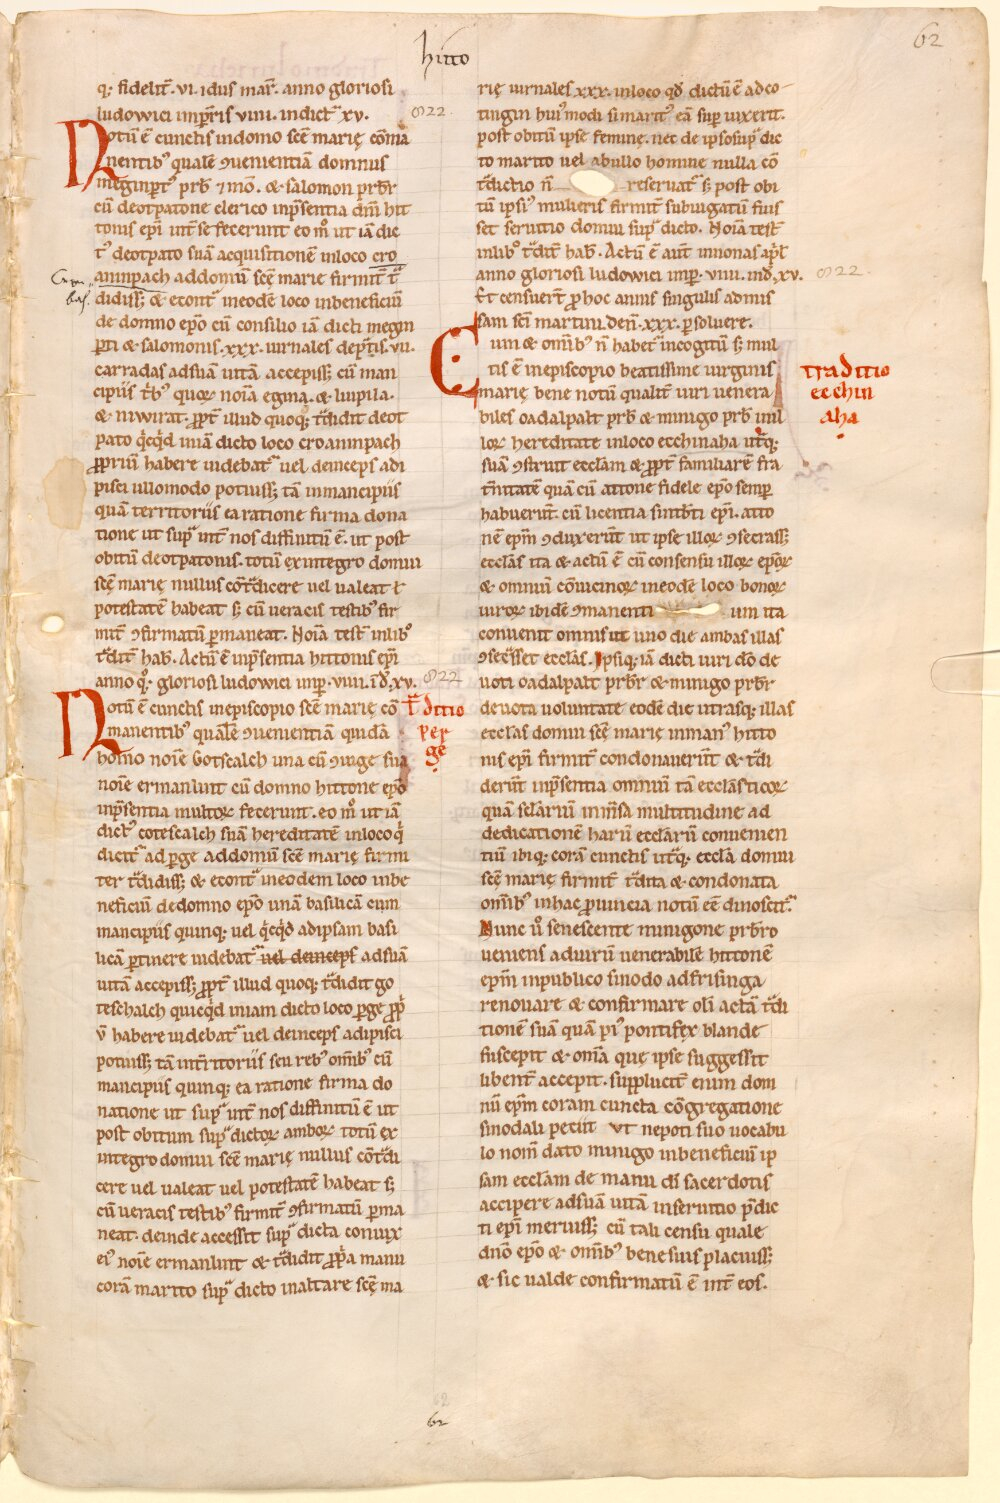 hitto
62
q; fidelit̄. vi. idus mar̄. anno gloriosi
ludowici imp̄ris viiii. indict̄ xv.
822
Notū ē cunctis indomo scē marię cōma
nentib' qualē ꝯuenientiā domnus
meginpt' prb̄ ⁊ mō. & salomon prb̄r
cū deotpatone clerico inp̄sentia dm̄ hit
tonis epi int̄ se fecerunt eo m° ut iā dic
t' deotpato suā acquisitionē inloco cro
aninpach addomū scē marie firmit̄ t̄
didiss; & econt̄ ineodē loco inbeneficiū
de domno epo cū consilio iā dicti megin
ꝑti & salomonis. xxx. iurnales de prtis. vii.
carradas adsuā uitā accepiss; cū man
cipiis trb' quoꝝ noiā egina. & luipila.
& niwirat. ꝓpt̄ illud quoq; t̄didit deot
pato qcqd iniā dicto loco croaninpach
ꝓpriū habere uidebat̄ uel deinceps adi
pisci ullomodo potuiss; tā inmancipiis
quā territoriis ea ratione firma dona
tione ut sup̄ int̄ nos diffinitū ē. ut post
obitū deotpatonis. totū ex integro domui
scē marię nullus cōt̄dicere uel ualeat ł
potestatē habeat s; cū ueracis testib' fir
mit̄ ꝯfirmatū ꝑmaneat. Noiā test̄ inlib°
t̄dit̄ hab̄. Actū ē inp̄sentia hittonis epi
anno q°. gloriosi ludowici imp. viiii. īd. xv.
822
Notū ē cunctis inepiscopio scē marię cō
t̄ditio
manentib' qualē ꝯuenientiā quidā
per
homo noīe Gotscalch una cū ꝯiuge sua
ge
noīe ermanlint cū domno hittone epo
inp̄sentia multoꝝ fecerunt. eo m° ut iā
dict' cotescalch suā hereditatē inloco q
dicit̄ ad ꝑge addomū scē marię firmi
ter t̄didiss; & econt̄ ineodem loco inbe
neficiū dedomno epo unā basilicā cum
mancipiis quinq; uel qcqd adipsam basi
licā ꝑtinere uidebat̄ uel deinceps adsuā
uitā accepiss; ꝓpt̄ illud quoq; t̄didit go
teschalch quicqd iniam dicto loco ꝑge ꝓp
ū habere uidebat̄ uel deinceps adipisci
potuiss; tā int̄ritoriis seu reb' omīb' cū
mancipiis quinq; ea ratione firma do
natione ut sup̄ int̄ nos diffinitū ē ut
post obitum sup̄ dictoꝝ amboꝝ totū ex
integro domui scē marię nullus cōt̄di
cere uel ualeat uel potestatē habeat s;
cū ueracis testib' firmit̄ ꝯfirmatū ꝑma
neat. deinde accessit sup̄ dicta coniux
ei' noīe ermanlint & t̄didit ꝓpa manu
corā marito sup̄ dicto inaltare scē ma
rię iurnales xxx. inloco qd dictū ē adco
tingin hui' modi si marit' eā sup uixerit.
post obitū ipse feminę. nec de ipso sup̄ dic
to marito uel abullo homine nulla cō
t̄dictio n̄ reseruat̄ s; post obi
tū ipsi' mulieris firmit̄ subiugatū fuis
set seruitio domui sup̄ dicto. Noiā test̄
inlib° t̄dit̄ hab̄. Actū ē aut̄ innonas apl
anno gloriosi ludowici imp. viiii. ind. xv.
822.
Et censuert̄ ꝓ hoc annis singulis admis
sam sci martini. den̄. xxx. ꝑsoluere.
Cum & omīb' n̄ habet̄ incogitū s; mul
tis ē inepiscopio beatissime uirginis
traditio
marię bene notū qualit̄ uiri uenera
ecchin
biles oadalpalt prb̄ & minigo prb̄ inil
aha
loꝝ hereditate inloco ecchinaha utq;
suā ꝯstruit ecclam & ꝓpt̄ familiarē fra
t̄nitatē quā cū attone fidele epo semp
habuerūt. cū licentia suibti epi. atto
nē epm ꝯduxerūt ut ipse illoꝝ ꝯsecrass;
ecclas ita & actū ē cū consensu illoꝝ epoꝝ
& omniū cōuicinoꝝ ineodē loco bonoꝝ
uiroꝝ ibidē ꝯmanenti um ita
conuenit omnis ut uno die ambas illas
ꝯsecrasset ecclas. Ipsiq; iā dicti uiri do de
uoti oadalpalt prb̄r & minigo prb̄r
deuota uoluntate eodē die utrasq; illas
ecclas domui scē marię inman' hitto
nis epi firmit̄ condonauerūt & t̄di
derūt inp̄sentia omniū tā ecclasticoꝝ
quā sclariū inm̄sa multitudine ad
dedicationē harū ecclarū conuenien
tiū ibiq; corā cunctis utq; eccla domui
scē marię firmit̄ t̄dita & condonata
omīb' inhac ꝓuincia notū eē dinoscit̄.
Nunc u° senescente minigone prb̄ro
ueniens aduirū uenerabilē hittonē
epm inpublico sinodo adfrisinga
renouare & confirmare olī actā t̄di
tionē suā quā pi' pontifex blande
suscepit & omīa quę ipse suggessit
libent̄ accepit. supplicit̄ enim dom
nū epm coram cuncta cōgregatione
sinodali petiit ut nepoti suo uocabu
lo nom̄ dato minigo inbeneficiū ip
sam ecclam de manu dī sacerdotis
accipere adsuā uitā inseruitio p̄dic
ti epi meruiss; cū tali censu quale
dnō epo & omīb' bene suis placuiss;
& sic ualde confirmatū ē int̄ eos.
62